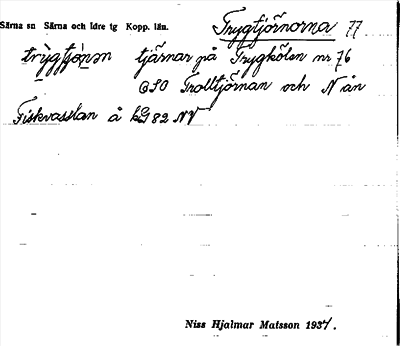 Särna sn Särna och Idre tg Kopp. län. Trygtjörnorna 77
trỳgtjö̀nən tjärnar på Trygkölen nr 76
OSO Trolltjörnan och N ån
Fiskvasslan å kG 82 NV
Niss Hjalmar Matsson 1937.